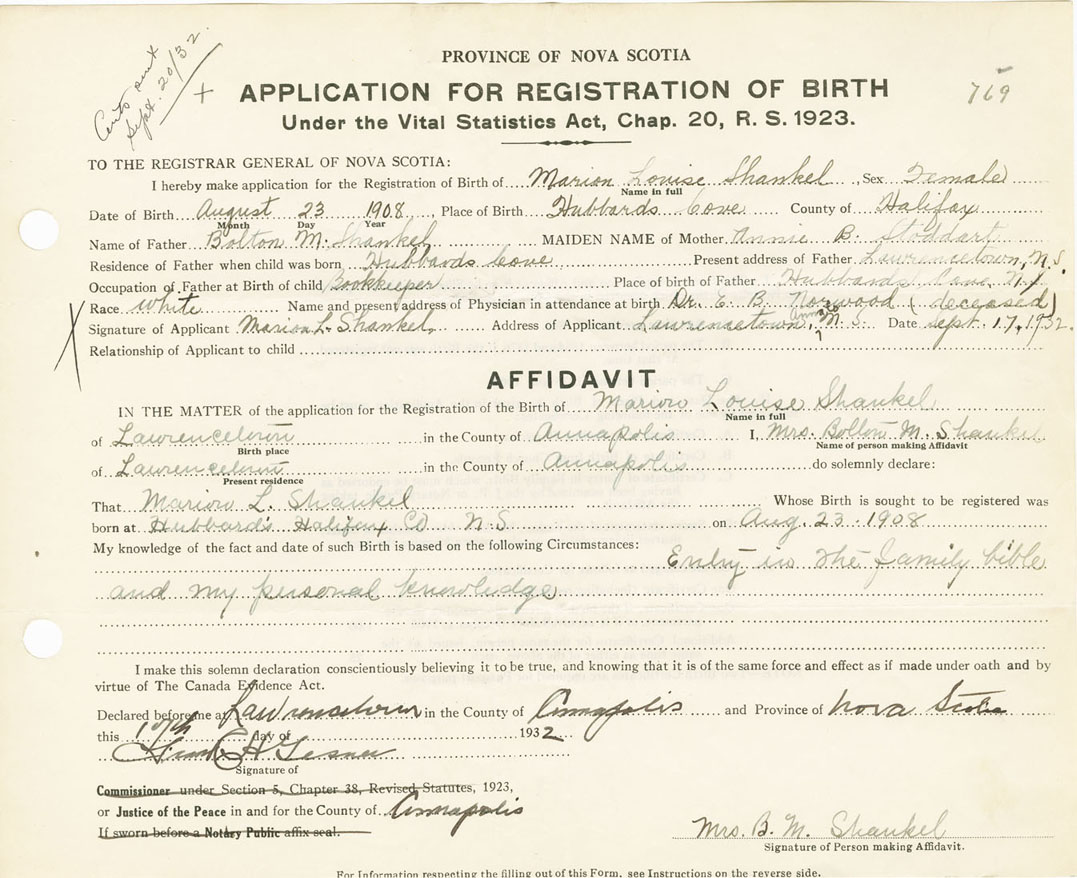 Certs sent
Sept. 20/32.
+
PROVINCE OF NOVA SCOTIA
APPLICATION FOR REGISTRATION OF BIRTH
769
Under the Vital Statistics Act, Chap. 20, R. S. 1923.
TO THE REGISTRAR GENERAL OF NOVA SCOTIA:
I hereby make application for the Registration of Birth of Marion Louise Shankel, Sex Female
Name in full
Date of Birth August 23 1908, Place of Birth Hubbards Cove County of Halifax
Month Day Year
Name of Father Bolton M. Shankel MAIDEN NAME of Mother Annie B. Stoddart
Residence of Father when child was born Hubbards Cove Present address of Father Lawrencetown, N.S.
Occupation of Father at Birth of child Bookkeeper Place of birth of Father Hubbards N.S.
Race White Name and present address of Physician in attendance at birth Dr. E. B. Norwood (deceased)
X Signature of Applicant Marion L. Shankel Address of Applicant Lawrencetown, Anna Co N.S. Date Sept. 17, 1932.
Relationship of Applicant to child
AFFIDAVIT
IN THE MATTER of the application for the Registration of the Birth of Marion Louise Shankel
Name in full
of Lawrencetown in the County of Annapolis I, Mrs. Bolton M. Shankel
Birth place Name of person making Affidavit
of Lawrencetown in the County of Annapolis do solemnly declare:
Present residence
That Marion L. Shankel Whose Birth is sought to be registered was
born at Hubbards Halifax CO N.S. on Aug. 23. 1908
My knowledge of the fact and date of such Birth is based on the following Circumstances:
Entry in the family bible
and my personal knowledge
I make this solemn declaration conscientiously believing it to be true, and knowing that it is of the same force and effect as if made under oath and by
virtue of The Canada Evidence Act.
Declared before me at Lawrencetown in the County of Annapolis and Province of Nova Scotia
this day of 1932
Frank H Gesner
Signature of
Commissioner under Section 5, Chapter 38, Revised Statutes, 1923,
or Justice of the Peace in and for the County of Annapolis
If sworn before a Notary Public affix seal.
Mrs. B. M. Shankel
Signature of Person making Affidavit.
For Information respecting the filling out of this Form, see Instructions on the reverse side.